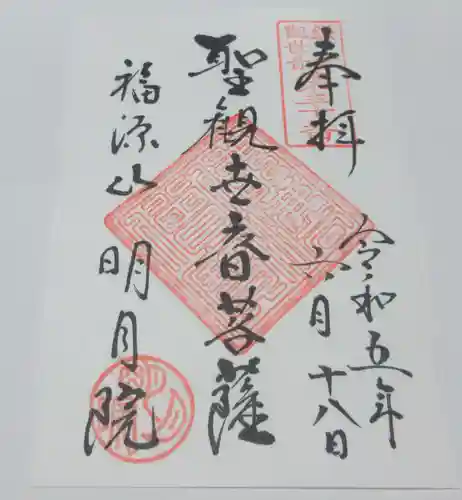 奉拝
令和五年
六月十八日
聖観世音菩薩
福源山
明月院